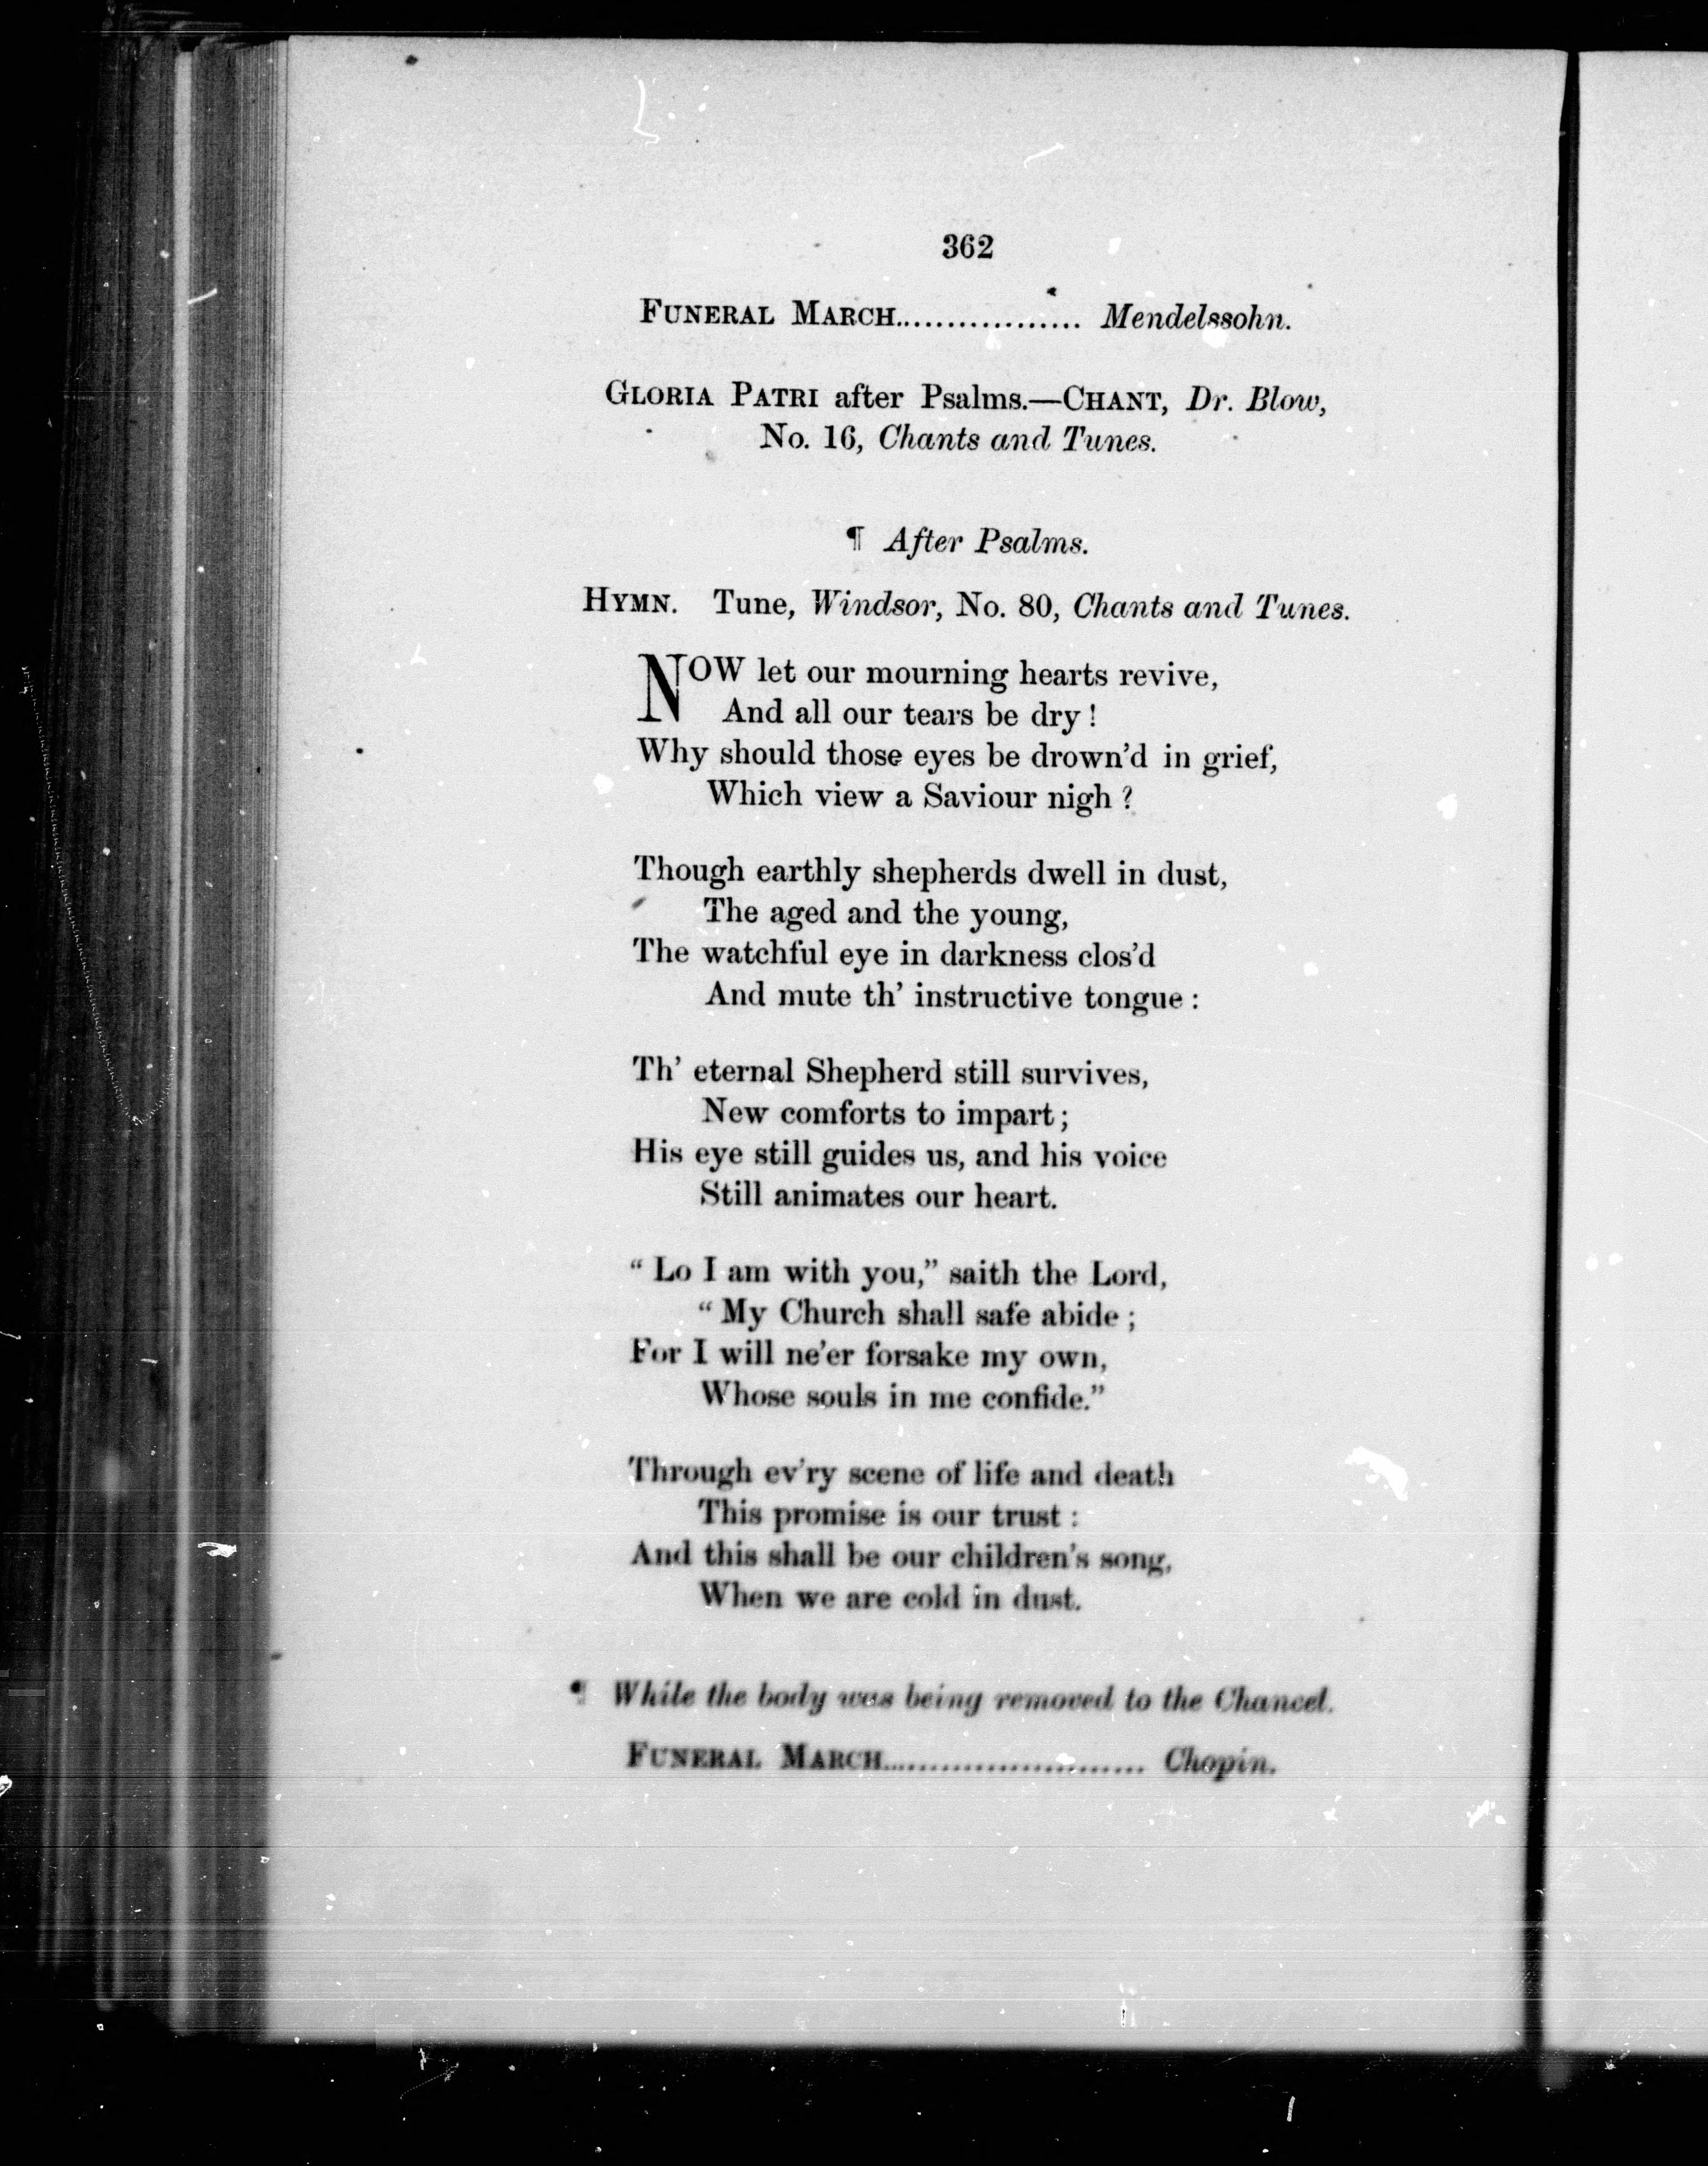 362
FUNERAL MARCH.................. Mendelssohn.
GLORIA PATRI after Psalms.—CHANT, Dr. Blow,
No. 16, Chants and Tunes.
¶ After Psalms.
HYMN. Tune, Windsor, No. 80, Chants and Tunes.
NOW let our mourning hearts revive,
And all our tears be dry!
Why should those eyes be drown'd in grief,
Which view a Saviour nigh?
Though earthly shepherds dwell in dust,
The aged and the young,
The watchful eye in darkness clos'd
And mute th' instructive tongue:
Th' eternal Shepherd still survives,
New comforts to impart;
His eye still guides us, and his voice
Still animates our heart.
“Lo I am with you,” saith the Lord,
“My Church shall safe abide;
For I will ne'er forsake my own,
Whose souls in me confide.”
Through ev'ry scene of life and death
This promise is our trust:
And this shall be our children's song,
When we are cold in dust.
¶ While the body was being removed to the Chancel.
FUNERAL MARCH.......................... Chopin.